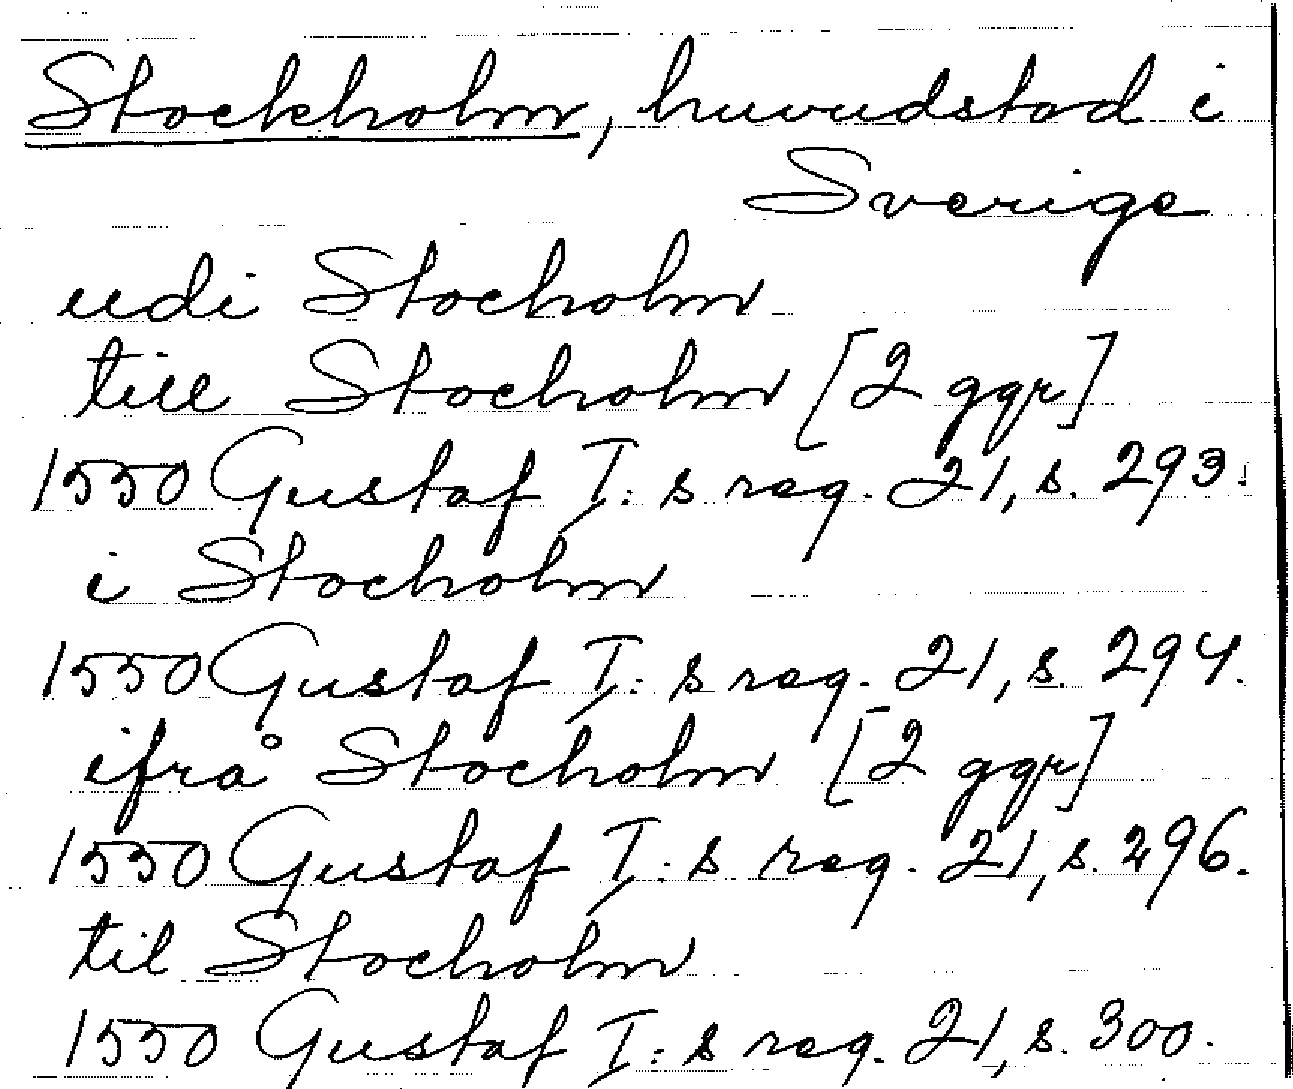 Stockholm, huvudstad i
Sverige
udi Stocholm
till Stocholm [2 ggr]
1550 Gustaf I: s reg. 21, s. 293.
i Stocholm
1550 Gustaf I: s reg. 21, s. 294.
ifrå Stocholm [2 ggr]
1550 Gustaf I: s reg. 21, s. 296.
til Stocholm
1550 Gustaf I: s reg. 21, s. 300.